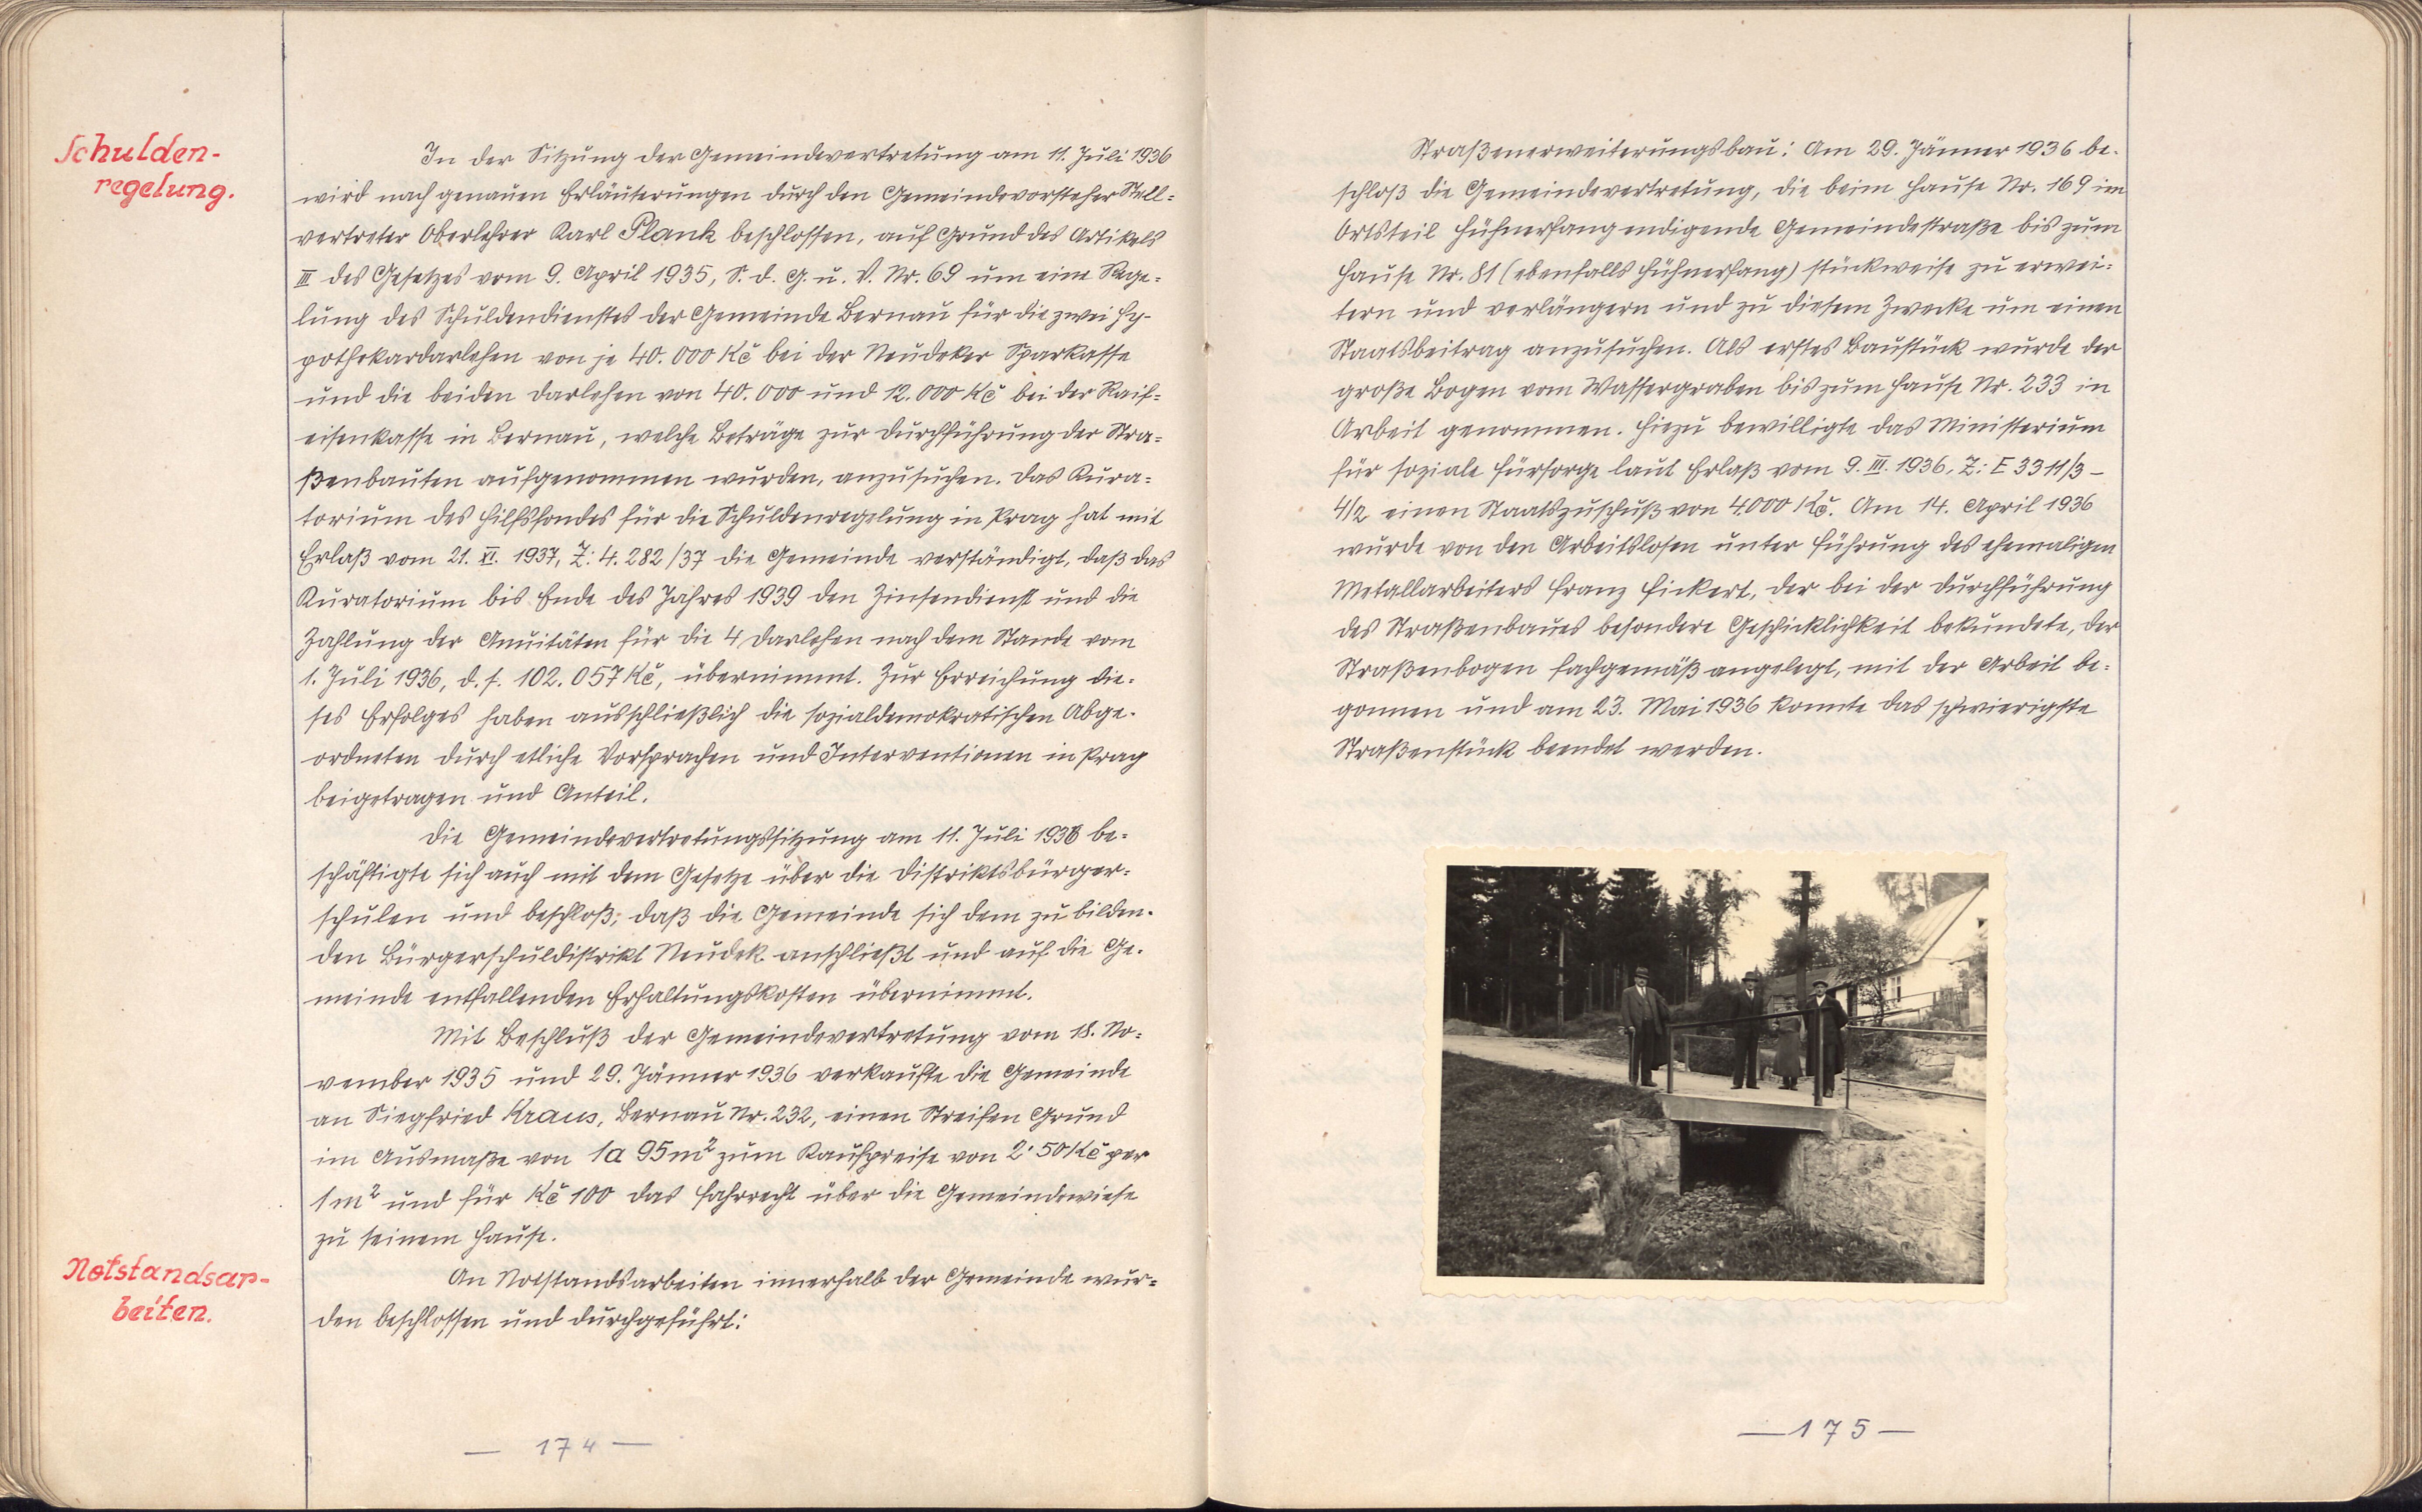 Schulden-
regelung.
In der Sitzung der Gemeindevertretung am 11. Juli 1936
wird nach genauen Erläuterungen durch den Gemeindevorsteher Stell-
vertreter Oberlehrer Karl Plank beschlossen, auf Grund des Artikels
III des Gesetzes vom 9. April 1935, S. d. G. u. V. Nr. 69 um eine Rege-
lung des Schuldendienstes der Gemeinde Bernau für die zwei Hy-
pothekardarlehen von je 40.000 Kč bei der Neudeker Sparkasse
und die beiden Darlehen von 40.000 und 12.000 Kč bei der Raif-
eisenkasse in Bernau, welche Beträge zur Durchführung der Stra-
ßenbauten aufgenommen wurden, anzusuchen. Das Kura-
torium des Hilfsfondes für die Schuldenregelung in Prag hat mit
Erlaß vom 21. VI. 1937, Z: 4.282/37 die Gemeinde verständigt, daß das
Kuratorium bis Ende des Jahres 1939 den Zinsendienst und die
Zahlung der Anuitäten für die 4 Darlehen nach dem Stande vom
1. Juli 1936, d. s. 102.057 Kč, übernimmt. Zur Erreichung die-
ses Erfolges haben ausschließlich die sozialdemokratischen Abge-
ordneten durch etliche Vorsprachen und Interventionen in Prag
beigetragen und Anteil.
Die Gemeindevertretungssitzung am 11. Juli 1936 be-
schäftigte sich auch mit dem Gesetze über die Distriktsbürger-
schulen und beschloß, daß die Gemeinde sich dem zu bilden-
den Bürgerschuldistrikt Neudek anschließt und auf die Ge-
meinde entfallenden Erhaltungskosten übernimmt.
Mit Beschluß der Gemeindevertretung vom 18. No-
vember 1935 und 29. Jänner 1936 verkaufte die Gemeinde
an Siegfried Kraus, Bernau Nr. 232, einen Streifen Grund
im Ausmaße von 1a 95m² zum Kaufpreise von 2·50 Kč per
1m² und für Kč 100 das Fahrrecht über die Gemeindewiese
zu seinem Hause.
Notstandsar-
beiten.
An Notstandsarbeiten innerhalb der Gemeinde wur-
den beschlossen und durchgeführt:
— 174 —
Straßenerweiterungsbau: Am 29. Jänner 1936 be-
schloß die Gemeindevertretung, die beim Hause Nr. 169 im
Ortsteil Hühnerfang endigende Gemeindestraße bis zum
Hause Nr. 81 (ebenfalls Hühnerfang) stückweise zu erwei-
tern und verlängern und zu diesem Zwecke um einen
Staatsbeitrag anzusuchen. Als erstes Baustück wurde der
große Bogen vom Wassergraben bis zum Hause Nr. 233 in
Arbeit genommen. Hiezu bewilligte das Ministerium
für soziale Fürsorge laut Erlaß vom 9. III. 1936, Z: E 3311/3-
4/2 einen Staatszuschuß von 4000 Kč. Am 14. April 1936
wurde von den Arbeitslosen unter Führung des ehemaligen
Metallarbeiters Franz Fickert, der bei der Durchführung
des Straßenbaues besondere Geschicklichkeit bekundete, der
Straßenbogen fachgemäß angelegt, mit der Arbeit be-
gonnen und am 23. Mai 1936 konnte das schwierigste
Straßenstück beendet werden.
— 175 —